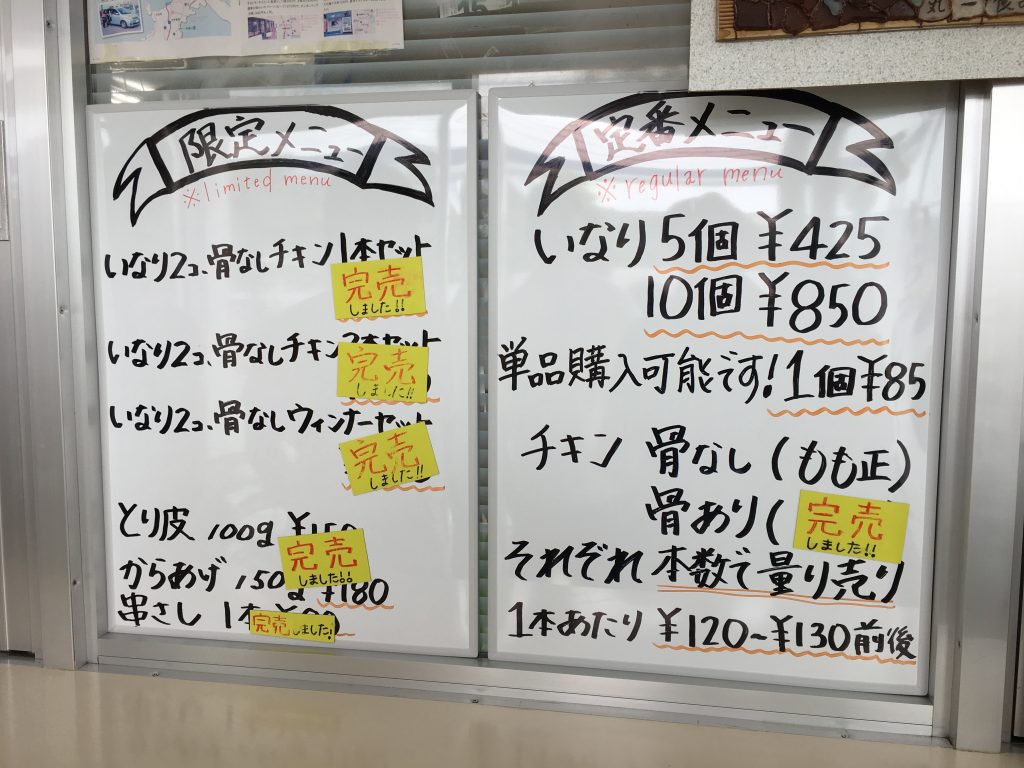 限定メニュー
※limited menu
いなり2コ、骨なしチキン1本セット
完売
しました!!
いなり2コ、骨なしチキン2本セット
完売
しました!!
いなり2コ、骨なしウィンナーセット
完売
しました!!
とり皮 100g ¥150
完売
しました!!
からあげ 150g ¥180
串さし 1本
完売しました!
定番メニュー
※regular menu
いなり 5個 ¥425
10個 ¥850
単品購入可能です! 1個 ¥85
チキン 骨なし (もも正)
骨あり (
完売
しました!!
それぞれ 本数で量り売り
1本あたり ¥120~¥130前後